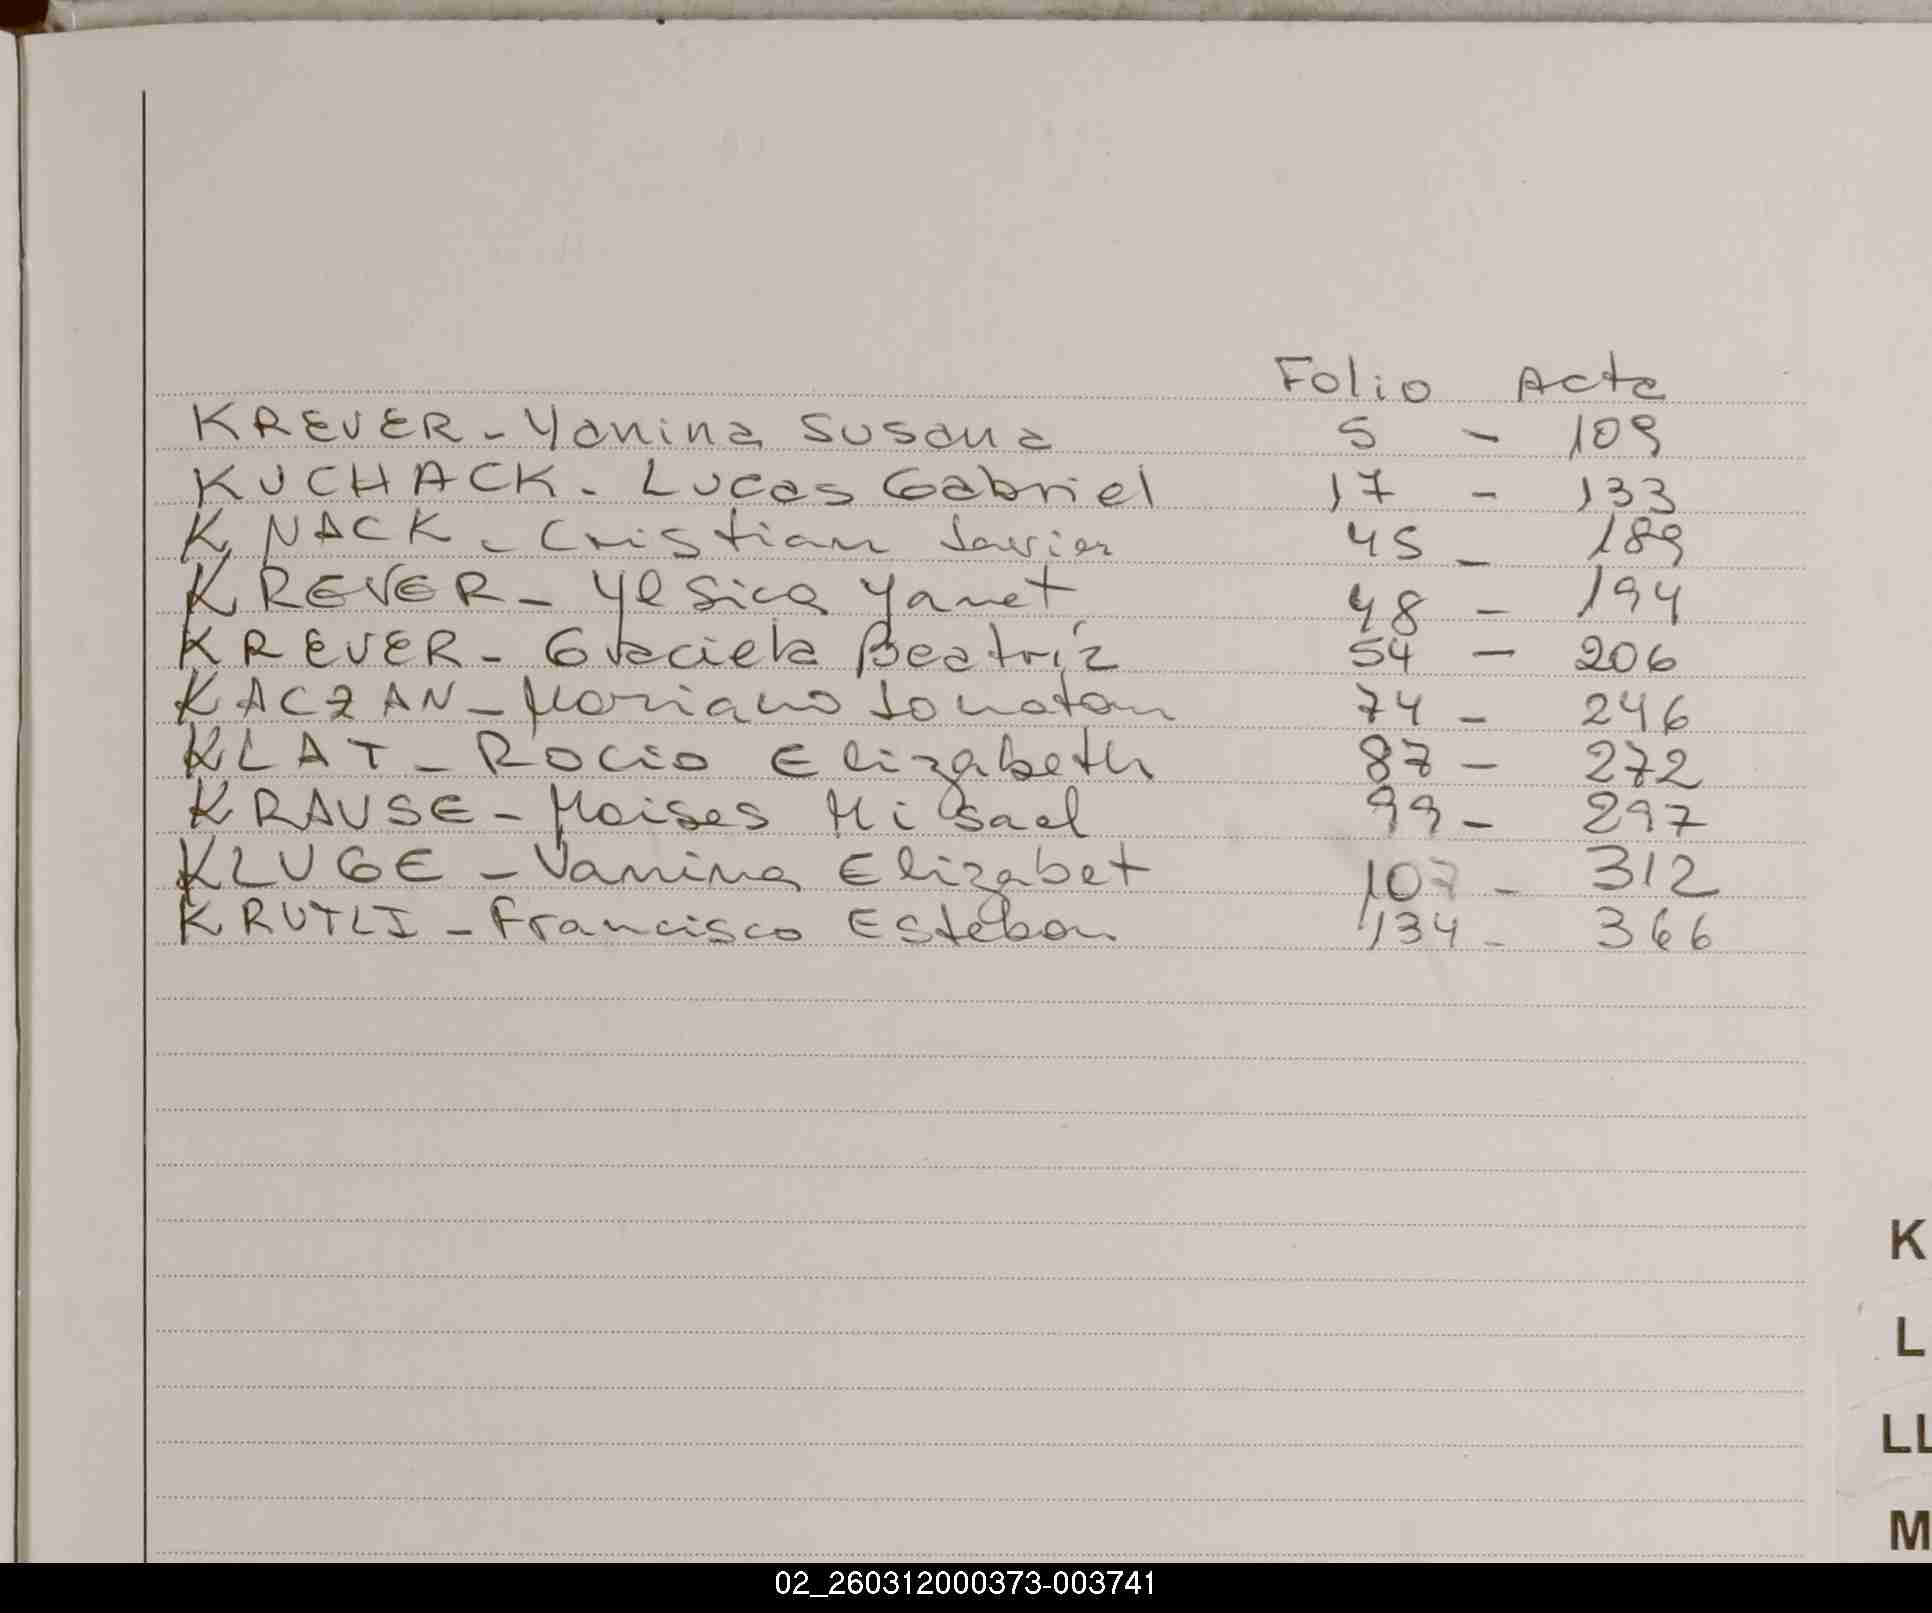 Folio Acta
KREVER - Yanina Susana 5 - 109
KUCHACK - Lucas Gabriel 17 - 133
KNACK - Cristian Javier 45 - 189
KREVER - Yesica Yanet 48 - 194
KREVER - Graciela Beatríz 54 - 206
KACZAN - Mariano Jonatan 74 - 246
KLAT - Rocio Elizabeth 87 - 272
KRAUSE - Moises Misael 99 - 297
KLUGE - Vanina Elizabet 107 - 312
KRUTLI - Francisco Esteban 134 - 366
K
L
LL
M
02_260312000373-003741